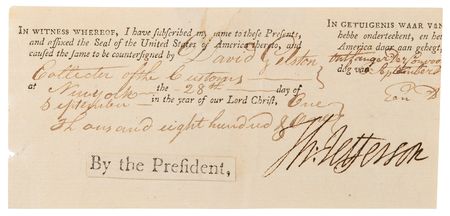 IN WITNESS WHEREOF, I have subscribed my name to these Presents,
and affixed the Seal of the United States of America thereto, and
caused the same to be countersigned by David Gelston
Collector of the Customs
at New york the 28th day of
September in the year of our Lord Christ, One
Thousand eight hundred &
Th: Jefferson
By the President,
IN GETUIGENIS WAAR VAN
hebbe onderteekent, en het
America daar aan gehegt,
door
dag van